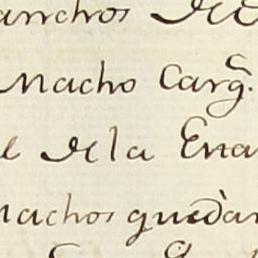 anchos de
Macho Carg.
e de la Ena
machos quedar